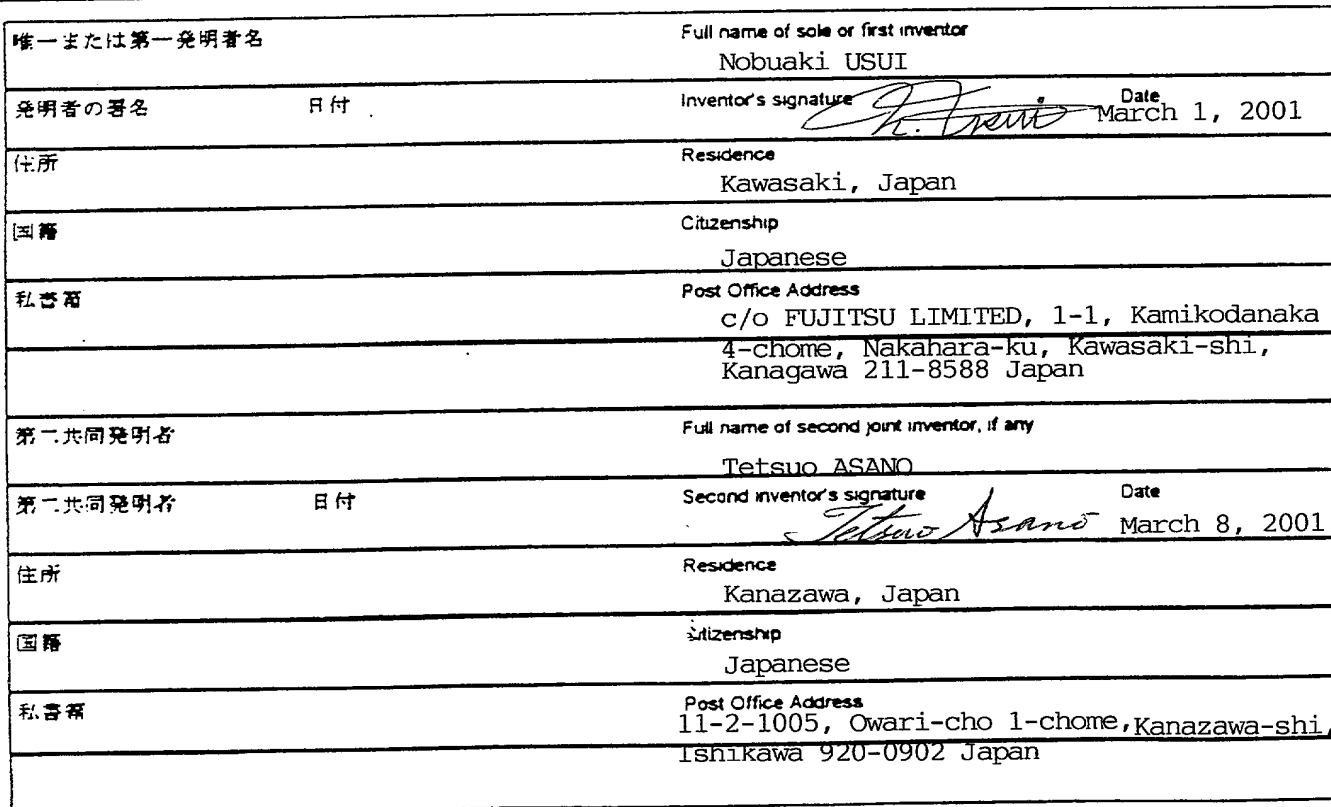 唯一または第一発明者名
Full name of sole or first inventor
Nobuaki USUI
発明者の署名 日付
Inventor's signature Date
N. Usui March 1, 2001
住所
Residence
Kawasaki, Japan
国籍
Citizenship
Japanese
私書箱
Post Office Address
c/o FUJITSU LIMITED, 1-1, Kamikodanaka
4-chome, Nakahara-ku, Kawasaki-shi,
Kanagawa 211-8588 Japan
第二共同発明者
Full name of second joint inventor, if any
Tetsuo ASANO
第二共同発明者 日付
Second inventor's signature Date
Tetsuo Asano March 8, 2001
住所
Residence
Kanazawa, Japan
国籍
Citizenship
Japanese
私書箱
Post Office Address
11-2-1005, Owari-cho 1-chome, Kanazawa-shi,
Ishikawa 920-0902 Japan